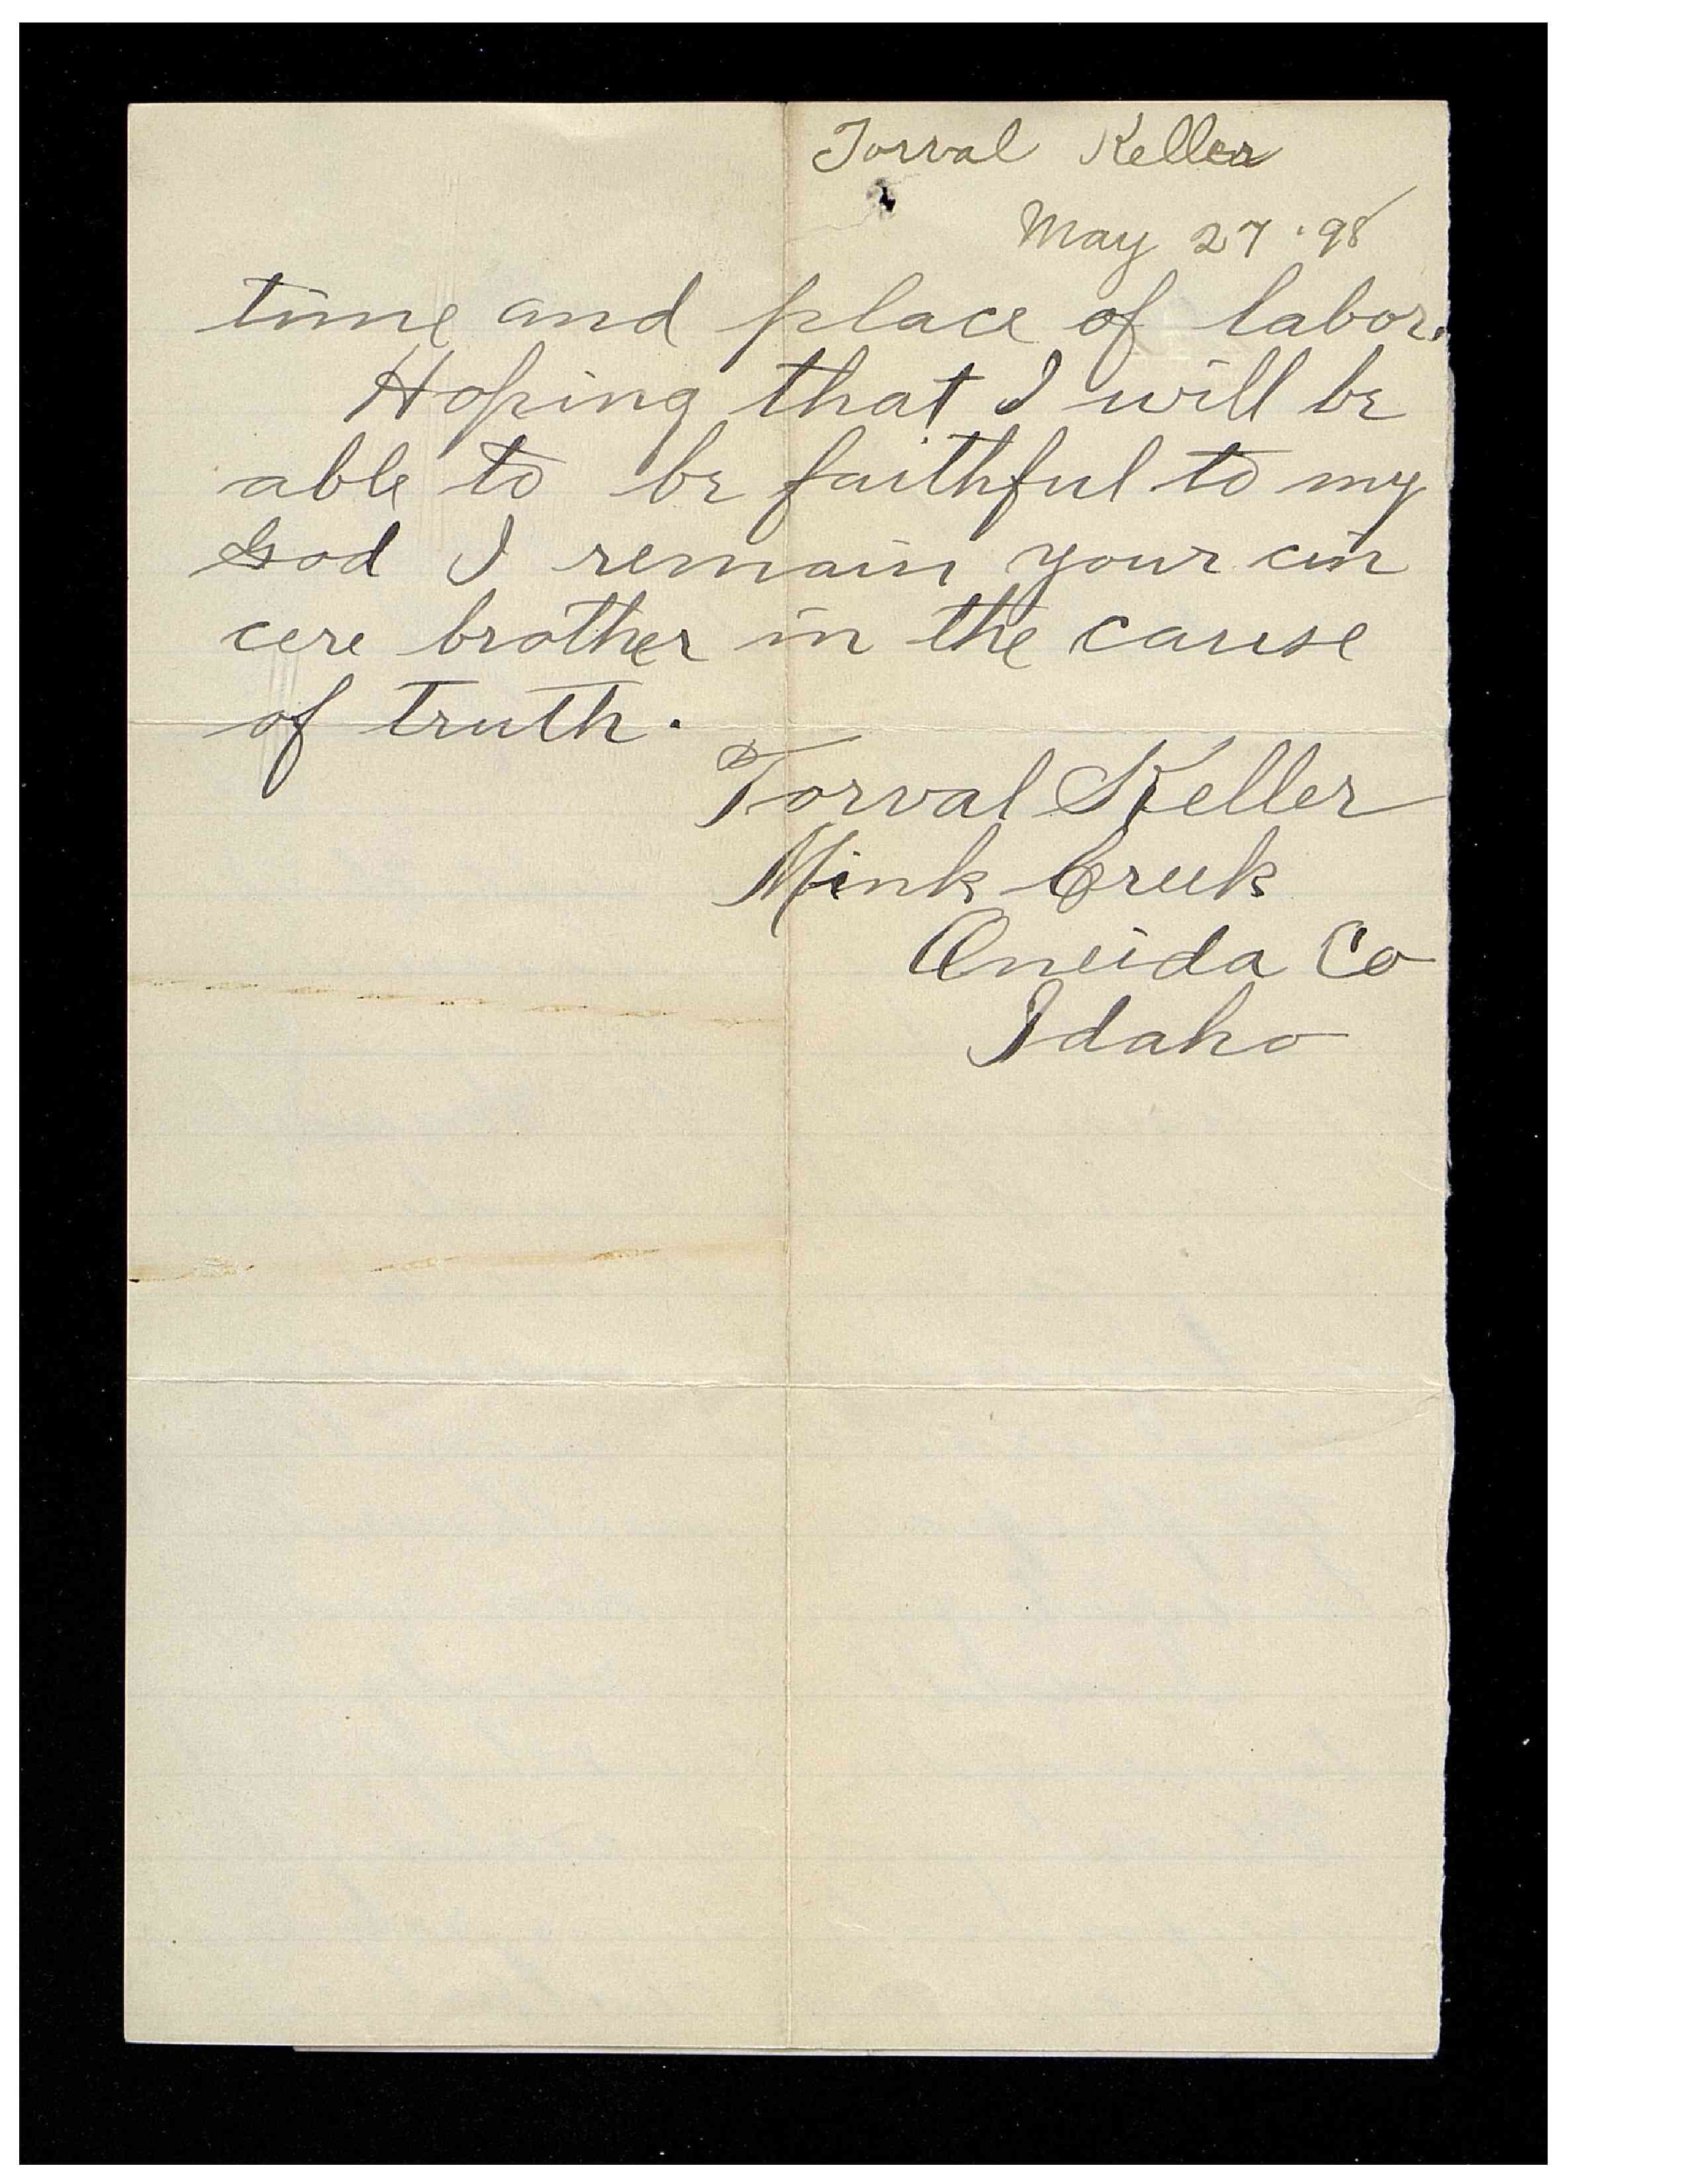 Torval Keller
May 27 '98
time and place of labor.
Hoping that I will be
able to be faithful to my
God I remain your cin
cere brother in the cause
of truth.
Torval Keller
Mink Creek
Oneida Co
Idaho